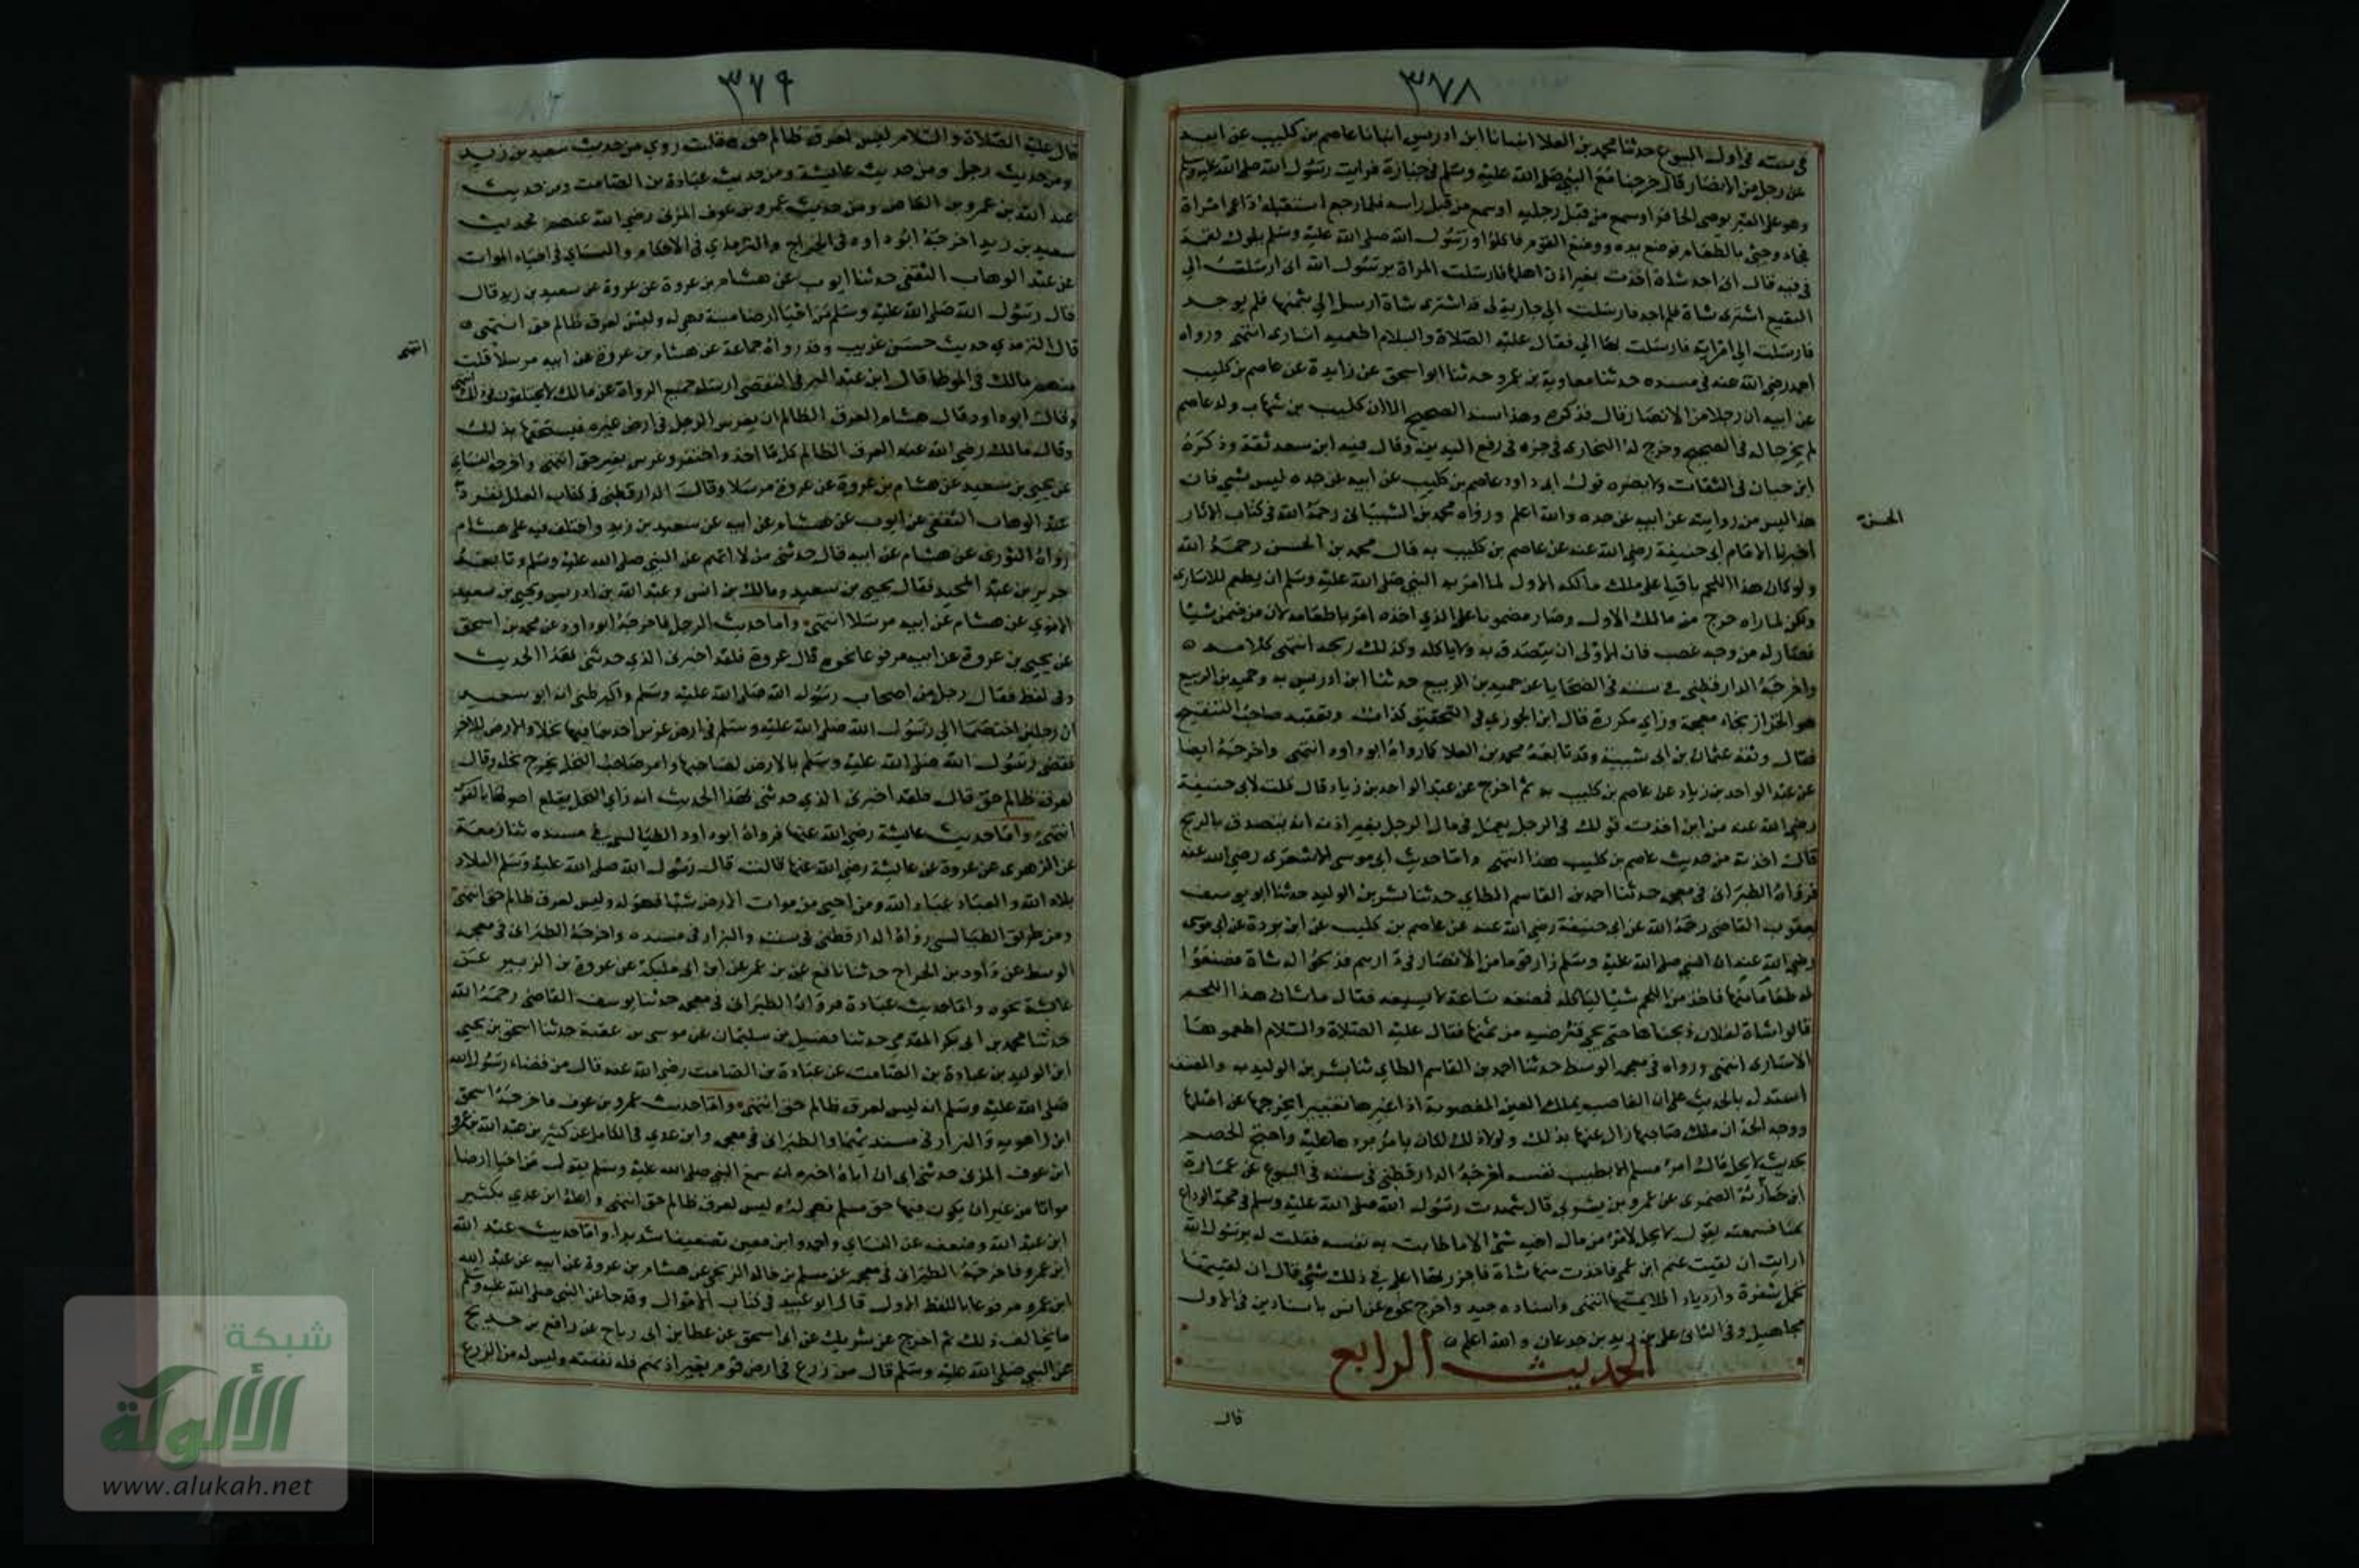 ٣٧٨
في سننه في اول البيوع حدثنا محمد بن العلا انبانا ابن ادريس انبانا عاصم بن كليب عن ابيه
عن رجل من الانصار قال خرجنا مع النبي صلى الله عليه وسلم في جنازة فرايت رسول الله صلى الله عليه وسلم
وهو على القبر يوصي الحافر اوسع من قبل رجليه اوسع من قبل راسه فلما رجع استقبله داعي امراة
فجاء وجئ بالطعام فوضع يده ووضع القوم فاكلوا ورسول الله صلى الله عليه وسلم يلوك لقمة
في فيه قال اني اجد شاة اخذت بغير اذن اهلها فارسلت المراة يرسول الله اني ارسلت الي
البقيع اشترى شاة فلم اجد فارسلت الي جار لي قد اشترى شاة ارسل الي بثمنها فلم يوجد
فارسلت الي امراته فارسلت بها الي فقال عليه الصلاة والسلام اطعميه اسارى انتهى ورواه
احمد رضي الله عنه في مسنده حدثنا معاوية بن عمرو حدثنا ابو اسحق عن زايدة عن عاصم بن كليب
عن ابيه ان رجلا من الانصار قال فذكره وهذا سند الصحيح الا ان كليب بن شهاب ولد عاصم
لم يخرجا له في الصحيح وخرج له البخارى في جزه في رفع اليدين وقال فيه ابن سعد ثقة وذكره
ابن حبان في الثقات ولا يضره قول ابي داود عاصم بن كليب عن ابيه عن جده ليس بشي فان
هذا ليس من روايته عن ابيه عن جده والله اعلم ورواه محمد بن الشيباني رحمه الله في كتاب الاثار
الحسن
اخبرنا الامام ابي حنيفة رضي الله عنه عن عاصم بن كليب به قال محمد بن الحسن رحمه الله
ولو كان هذا اللحم باقيا على ملك مالكه الاول لما امر به النبي صلى الله عليه وسلم ان يطعم للاسارى
ولكن لما راه خرج من مالك الاول وصار مضمونا على الذي اخذه امر باطعامه لان من ضمن شيا
فصار له من وجه غصب فان الاولى ان يتصدق به ولا ياكله وكذلك ربحه انتهى كلامه
واخرجه الدارقطني في سننه في الضحايا عن حميد بن الربيع حدثنا ابن ادريس به وحميد بن الربيع
هو الخزاز بخاء معجمة وزاي مكررة قال ابن الجوزي في التحقيق كذاب وتعقبه صاحب التنقيح
فقال وثقه عثمان بن ابى شيبة وقد تابعه محمد بن العلا كما رواه ابو داود انتهى واخرجه ايضا
عن عبد الواحد بن زياد عن عاصم بن كليب به ثم اخرج عن عبد الواحد بن زياد قال قلت لابي حنيفة
رضي الله عنه من اين اخذت قولك في الرجل يعمل في مال الرجل بغير اذنه انه يتصدق بالربح
قال اخذته من حديث عاصم بن كليب هذا انتهى واما حديث ابي موسى الاشعرى رضي الله عنه
فرواه الطبراني في معجمه حدثنا احمد بن القاسم الطاي حدثنا بشر بن الوليد حدثنا ابو يوسف
يعقوب القاضي رحمه الله عن ابي حنيفة رضي الله عنه عن عاصم بن كليب عن ابن بردة عن ابي موسى
رضي الله عنه ان النبي صلى الله عليه وسلم زار قوما من الانصار في دارهم فذبحوا له شاة فصنعوا
له طعاما منها فاخذ من اللحم شيا لياكله فمضغه ساعة لا يسيغه فقال ما شان هذا اللحم
قالوا شاة لفلان ذبحناها حتى يجي فنرضيه من ثمنها فقال عليه الصلاة والسلام اطعموها
الاسارى انتهى ورواه في معجمه الوسط حدثنا احمد بن القاسم الطاي ثنا بشر بن الوليد به والمصنف
استدل بالحديث على ان الغاصب يملك العين المغصوبة اذا غيرها تغييرا يخرجها عن اصلها
ووجه الحجة ان ملك صاحبها زال عنها بذلك ولولا ذلك لكان يامر بردها عليه واحتج الخصم
بحديث لا يحل مال امرء مسلم الا بطيب نفسه اخرجه الدارقطني في سننه في البيوع عن عمارة
ابن حارثة الضمرى عن عمرو بن يثربي قال شهدت رسول الله صلى الله عليه وسلم في حجة الوداع
بمنا فسمعته يقول لا يحل لامرء من مال اخيه شئ الا ما طابت به نفسه فقلت له يرسول الله
ارايت ان لقيت غنم ابن عمي فاخذت منها شاة فاجتزرتها اعلي في ذلك شي قال ان لقيتها
تحمل شفرة وازنادا فلا تمسها انتهى واسناده جيد واخرج نحوه عن انس باسنادين في الاول
مجاهيل وفي الثاني علي بن زيد بن جدعان والله اعلم
الحديث الرابع
قال
٣٧٩
قال عليه الصلاة والسلام ليس لعرق ظالم حق قلت روي من حديث سعيد بن زيد
ومن حديث رجل ومن حديث عايشة ومن حديث عبادة بن الصامت ومن حديث
عبد الله بن عمرو بن العاص ومن حديث عمرو بن عوف المزنى رضي الله عنهم فحديث
سعيد بن زيد اخرجه ابو داود في الخراج والترمذي في الاحكام والنساي في احياء الموات
عن عبد الوهاب الثقفي حدثنا ايوب عن هشام بن عروة عن عروة عن سعيد بن زيد قال
قال رسول الله صلى الله عليه وسلم من احيا ارضا ميتة فهي له وليس لعرق ظالم حق انتهى
قال الترمذي حديث حسن غريب وقد رواه جماعة عن هشام بن عروة عن ابيه مرسلا قلت
انتهى
منهم مالك في الموطا قال ابن عبد البر في التقصي ارسله جميع الرواة عن مالك لا يختلفون في ذلك انتهى
وقال ابو داود قال هشام العرق الظالم ان يغرس الرجل في ارض غيره فيستحقها بذلك
وقال مالك رضي الله عنه العرق الظالم كل ما اخذ واحتفر وغرس بغير حق انتهى واخرجه النساي
عن يحيى بن سعيد عن هشام بن عروة عن عروة مرسلا وقال الدارقطني في كتاب العلل تفرد به
عبد الوهاب الثقفي عن ايوب عن هشام عن ابيه عن سعيد بن زيد واختلف فيه على هشام
رواه الثورى عن هشام عن ابيه قال حدثني من لا اتهم عن النبي صلى الله عليه وسلم وتابعه
جرير بن عبد الحميد فقال يحيى بن سعيد ومالك بن انس وعبد الله بن ادريس ويحيى بن سعيد
الاموي عن هشام عن ابيه مرسلا انتهى واما حديث الرجل فاخرجه ابو داود عن محمد بن اسحق
عن يحيى بن عروة عن ابيه مرفوعا نحوه قال عروة فلقد اخبرنى الذي حدثني بهذا الحديث
وفي لفظ فقال رجل من اصحاب رسول الله صلى الله عليه وسلم واكبر ظني انه ابو سعيد
ان رجلين اختصما الي رسول الله صلى الله عليه وسلم في ارض غرس احدهما فيها نخلا والارض للاخر
فقضى رسول الله صلى الله عليه وسلم بالارض لصاحبها وامر صاحب النخل يخرج نخله وقال
لعرق ظالم حق قال فلقد اخبرنى الذي حدثني بهذا الحديث انه راي النخل يقلع اصولها بالفوس
انتهى واما حديث عايشة رضي الله عنها فرواه ابو داود الطيالسي في مسنده ثنا زمعة
عن الزهرى عن عروة عن عايشة رضي الله عنها قالت قال رسول الله صلى الله عليه وسلم البلاد
بلاد الله والعباد عباد الله ومن احيى من موات الارض شيا فهو له وليس لعرق ظالم حق انتهى
ومن طريق الطيالسي رواه الدارقطني في سننه والبزار في مسنده واخرجه الطبراني في معجمه
الوسط عن داود بن الجراح حدثنا نافع بن عمر عن ابن ابي مليكة عن عروة بن الزبير عن
عايشة نحوه واما حديث عبادة فرواه الطبراني في معجمه حدثنا يوسف القاضي رحمه الله
حدثنا محمد بن ابي بكر المقدمي حدثنا فضيل بن سليمان عن موسى بن عقبة حدثنا اسحق بن يحيى
ابن الوليد بن عبادة بن الصامت عن عبادة بن الصامت رضي الله عنه قال من قضاء رسول الله
صلى الله عليه وسلم انه ليس لعرق ظالم حق انتهى واما حديث عمرو بن عوف فاخرجه اسحق
ابن راهويه والبزار في مسنديهما والطبراني في معجمه وابن عدي في الكامل عن كثير بن عبد الله بن عمرو
ابن عوف المزنى حدثني ابي ان اباه اخبره انه سمع النبي صلى الله عليه وسلم يقول من احيا ارضا
مواتا من غير ان يكون فيها حق مسلم فهي له وليس لعرق ظالم حق انتهى واعله ابن عدي بكثير
ابن عبد الله وضعفه عن النساي واحمد وابن معين تضعيفا شديدا واما حديث عبد الله
ابن عمرو فاخرجه الطبراني في معجمه عن مسلم بن خالد الزنجي عن هشام بن عروة عن ابيه عن عبد الله
ابن عمرو مرفوعا باللفظ الاول قال ابو عبيد في كتاب الاموال وقد جا عن النبي صلى الله عليه وسلم
ما يخالف ذلك ثم اخرج عن شريك عن ابي اسحق عن عطا بن ابي رباح عن رافع بن خديج
عن النبي صلى الله عليه وسلم قال من زرع في ارض قوم بغير اذنهم فله نفقته وليس له من الزرع
شبكة
الألوكة
www.alukah.net